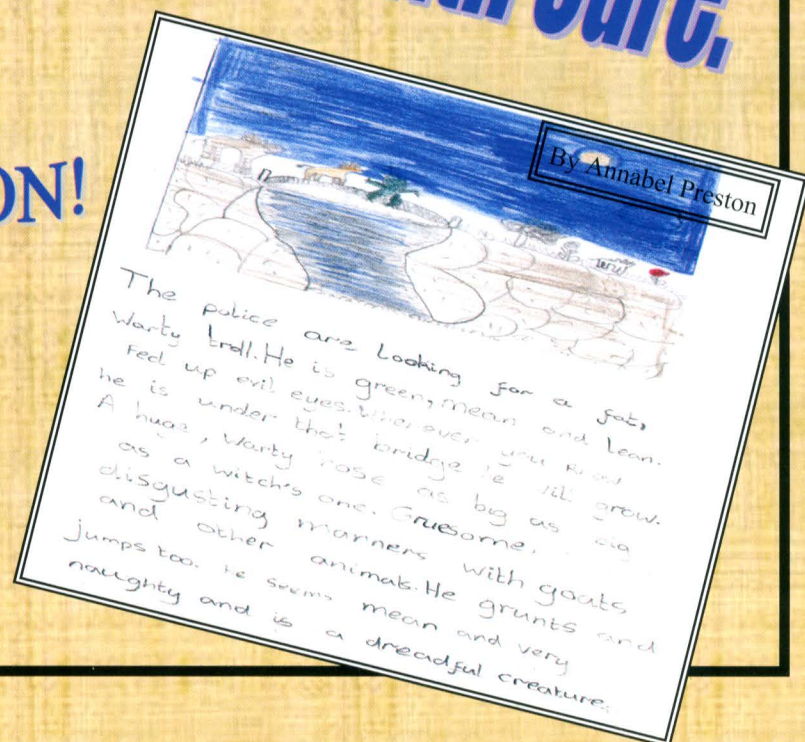 with care.
ON!
By Annabel Preston
The police are Looking for a fat,
Warty troll. He is green, mean and Lean.
Fed up evil eyes. Whenever you know
he is under that bridge he will grow.
A huge, Warty nose as big as big
as a witch's one. Gruesome,
disgusting manners with goats
and other animals. He grunts and
jumps too. He seems mean and very
naughty and is a dreadful creature.